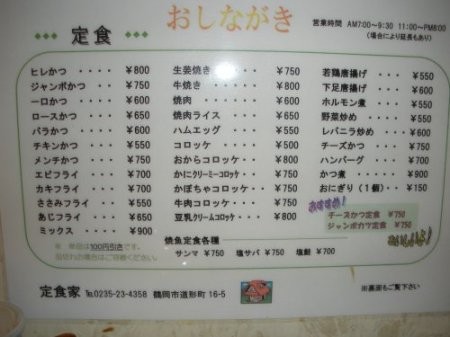 おしながき
営業時間 AM7:00～9:30 11:00～PM8:00
（場合により延長もあり）
定食
ヒレかつ ・・・・ ￥800
ジャンボかつ ・・・ ￥750
一口かつ ・・・・ ￥600
ロースかつ ・・・・ ￥650
バラかつ ・・・・ ￥600
チキンかつ ・・・・ ￥550
メンチかつ ・・・・ ￥750
エビフライ ・・・・ ￥700
カキフライ ・・・・ ￥700
ささみフライ ・・・ ￥550
あじフライ ・・・・ ￥650
ミックス ・・・・ ￥900
※ 単品は100円引きです。
品切れの場合はご容赦ください。
生姜焼き・・・・ ￥750
牛焼き・・・・・ ￥800
焼肉・・・・・・ ￥600
焼肉ライス・・・ ￥650
ハムエッグ・・・ ￥550
コロッケ・・・・ ￥500
おからコロッケ・・ ￥800
かにクリーミーコロッケ・ ￥750
かぼちゃコロッケ・・ ￥750
牛肉コロッケ・・・ ￥750
豆乳クリームコロッケ・・ ￥800
焼魚定食各種
サンマ ￥750 塩サバ ￥750 塩鮭 ￥700
若鶏唐揚げ・・・ ￥550
下足唐揚げ・・・ ￥600
ホルモン煮・・・ ￥550
野菜炒め・・・・ ￥550
レバニラ炒め・・・ ￥600
チーズかつ・・・ ￥750
ハンバーグ・・・ ￥700
かつ煮・・・・・ ￥900
おにぎり（1個）・・ ￥150
おすすめ！
チーズかつ定食 ￥750
ジャンボカツ定食 ￥750
定食家 Tel.0235-23-4358 鶴岡市道形町 16-5
※裏面もご覧下さい